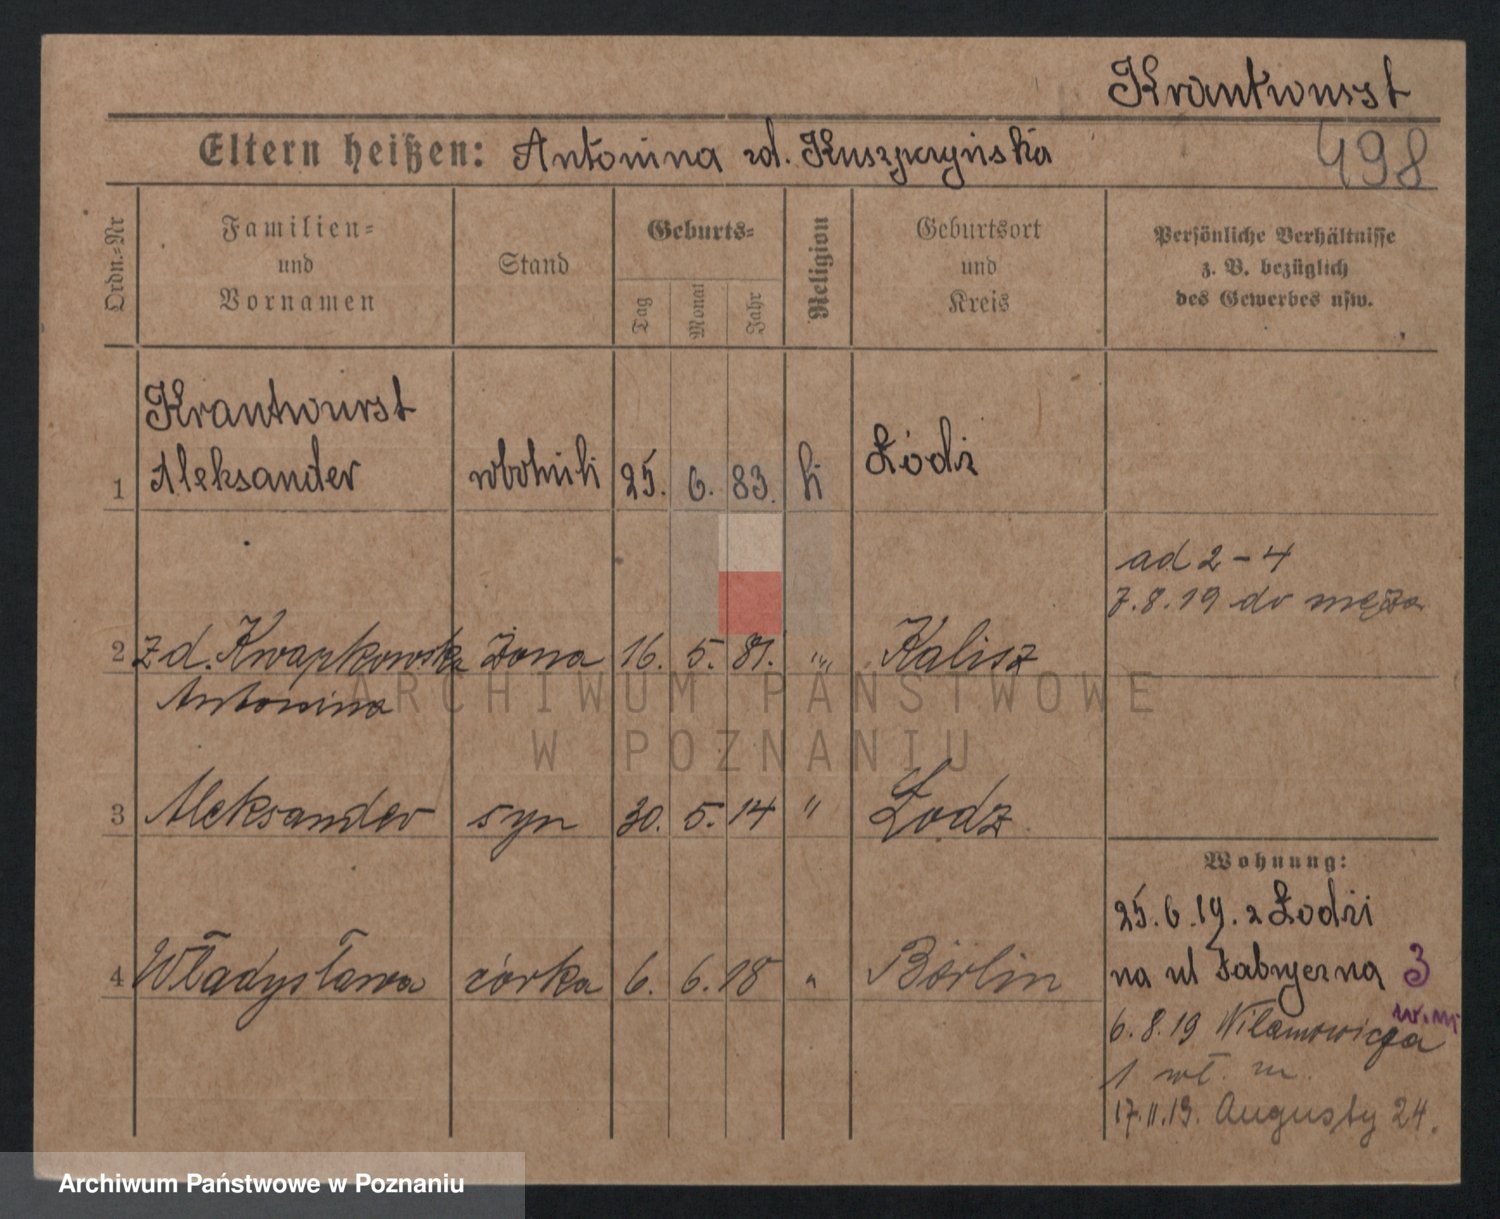 Krantwurst
Eltern heißen: Antonina zd. Kuszpryńska
498
Ordn.=Nr
Familien=
und
Vornamen
Stand
Geburts=
Tag
Monat
Jahr
Religion
Geburtsort
und
Kreis
Persönliche Verhältnisse
z. B. bezüglich
des Gewerbes usw.
Krantwurst
1 Aleksander robotnik 25. 6. 83. k Łódź
ad 2 – 4
7.8.19 do męża
2 zd. Kwapkowska żona 16. 5. 81. " Kalisz
Antonina
ARCHIWUM PAŃSTWOWE
W POZNANIU
3 Aleksander syn 30. 5. 14 " Łodz
Wohnung:
25.6.19. z Łodzi
4 Władysława córka 6. 6. 18 " Berlin
na ul Fabryczną 3
w.m
6.8.19 Wilamowicza
1 wł. m.
17.11.19. Augusty 24.
Archiwum Państwowe w Poznaniu